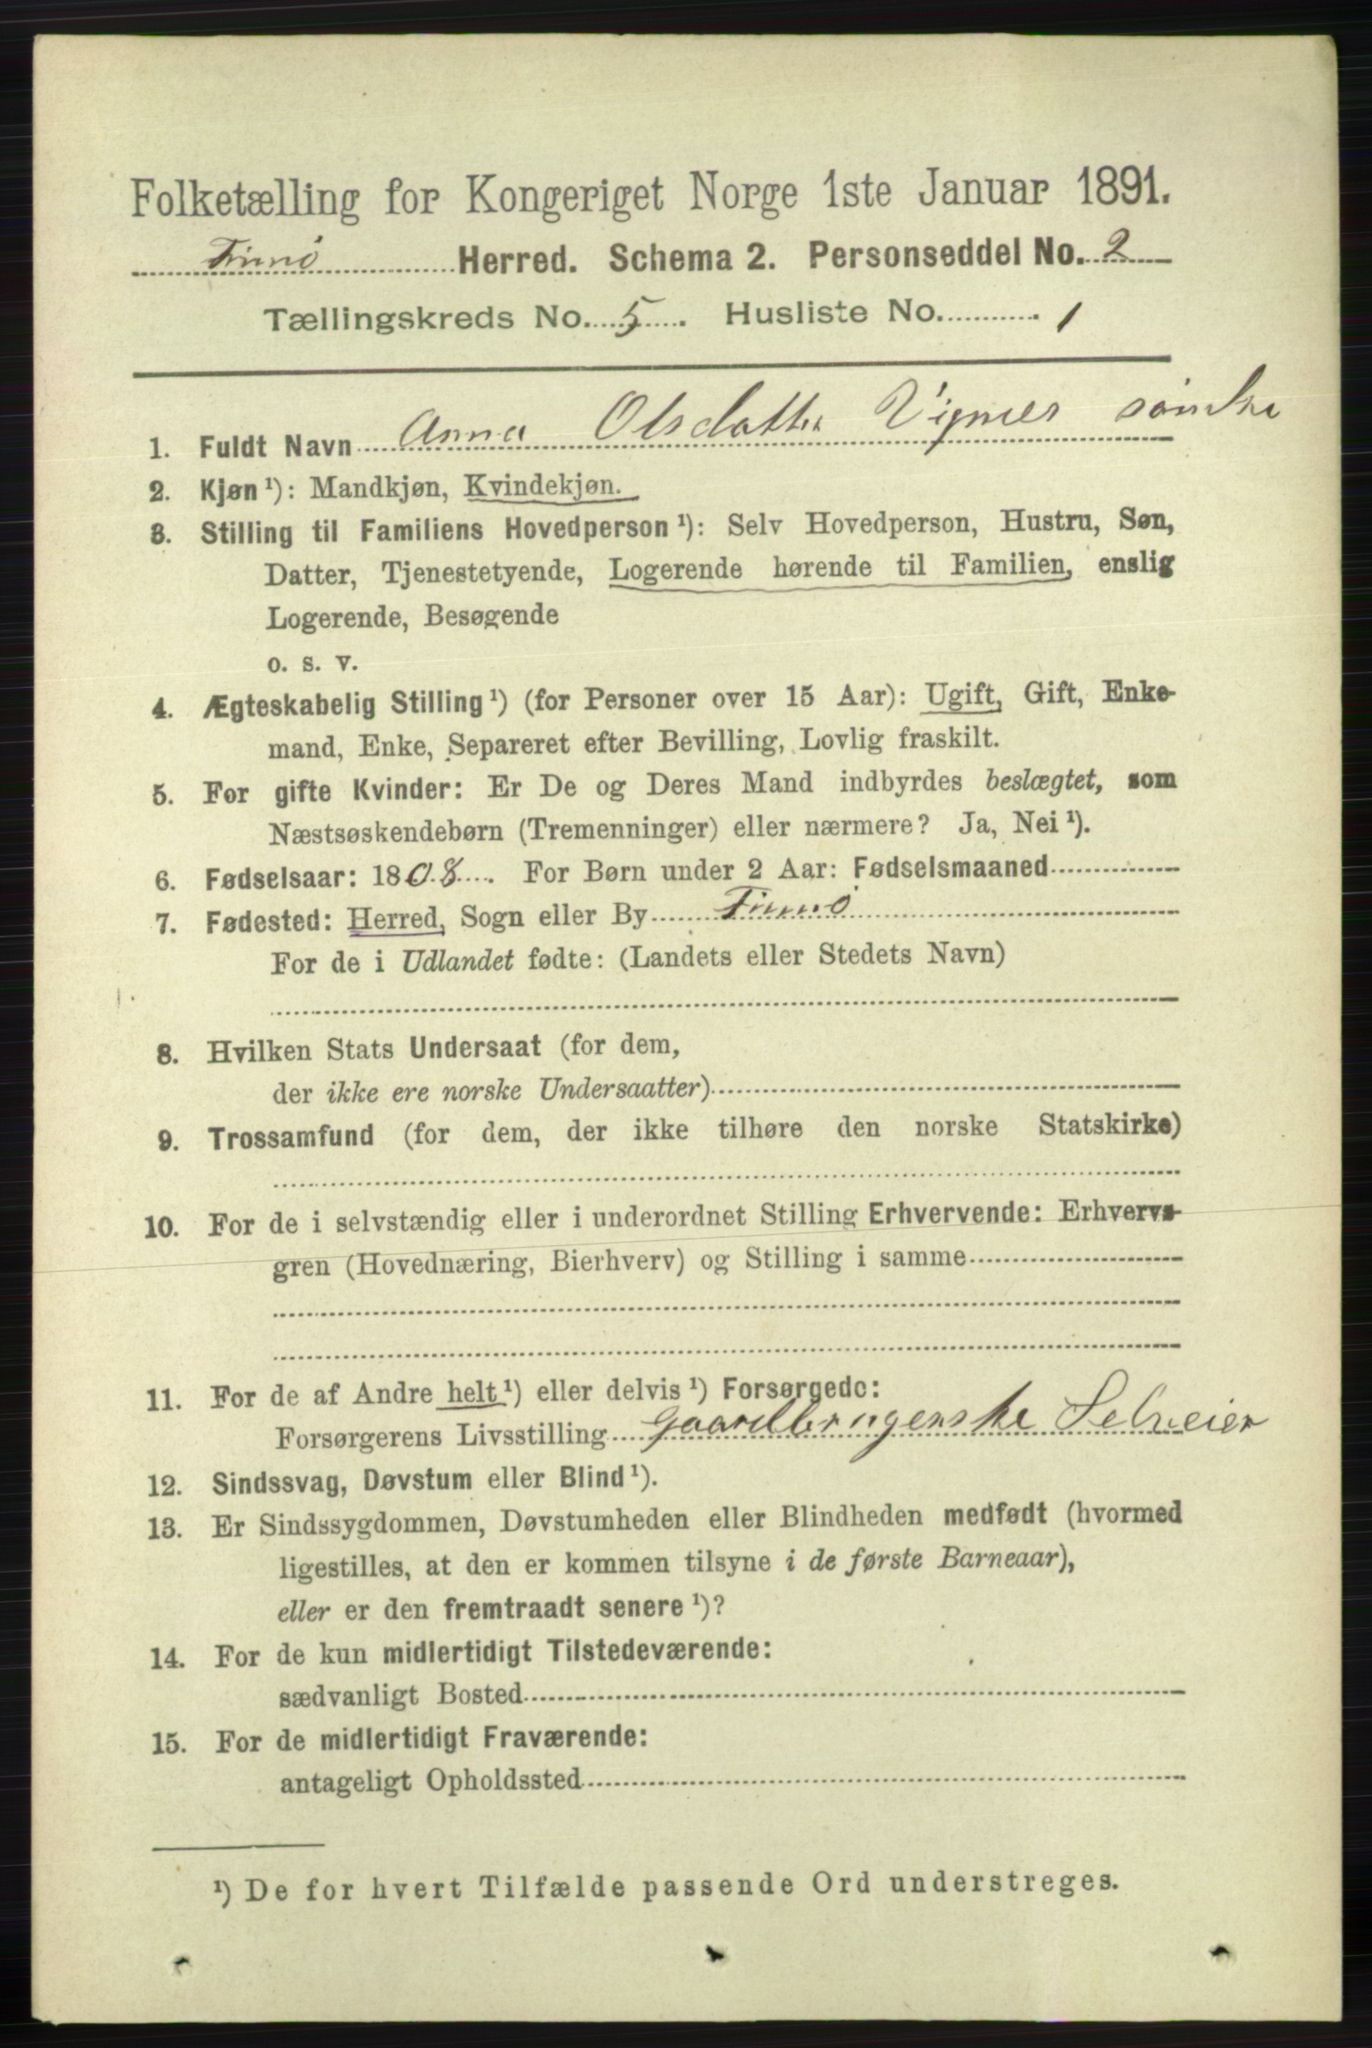 Folketælling for Kongeriget Norge 1ste Januar 1891.
Finnø Herred. Schema 2. Personseddel No. 2
Tællingskreds No. 5. Husliste No. 1
1. Fuldt Navn Anna Olsdatter Vignes
2. Kjøn ¹): Mandkjøn, Kvindekjøn.
3. Stilling til Familiens Hovedperson ¹): Selv Hovedperson, Hustru, Søn,
Datter, Tjenestetyende, Logerende hørende til Familien, enslig
Logerende, Besøgende
o. s. v.
4. Ægteskabelig Stilling ¹) (for Personer over 15 Aar): Ugift, Gift, Enke-
mand, Enke, Separeret efter Bevilling, Lovlig fraskilt.
5. For gifte Kvinder: Er De og Deres Mand indbyrdes beslægtet, som
Næstsøskendebørn (Tremenninger) eller nærmere? Ja, Nei ¹).
6. Fødselsaar: 1808. For Børn under 2 Aar: Fødselsmaaned
7. Fødested: Herred, Sogn eller By Finnø
For de i Udlandet fødte: (Landets eller Stedets Navn)
8. Hvilken Stats Undersaat (for dem,
der ikke ere norske Undersaatter)
9. Trossamfund (for dem, der ikke tilhøre den norske Statskirke)
10. For de i selvstændig eller i underordnet Stilling Erhvervende: Erhvervs-
gren (Hovednæring, Bierhverv) og Stilling i samme
11. For de af Andre helt ¹) eller delvis ¹) Forsørgede:
Forsørgerens Livsstilling Gaardbrugerske Selveier
12. Sindssvag, Døvstum eller Blind ¹).
13. Er Sindssygdommen, Døvstumheden eller Blindheden medfødt (hvormed
ligestilles, at den er kommen tilsyne i de første Barneaar),
eller er den fremtraadt senere ¹)?
14. For de kun midlertidigt Tilstedeværende:
sædvanligt Bosted
15. For de midlertidigt Fraværende:
antageligt Opholdssted
¹) De for hvert Tilfælde passende Ord understreges.